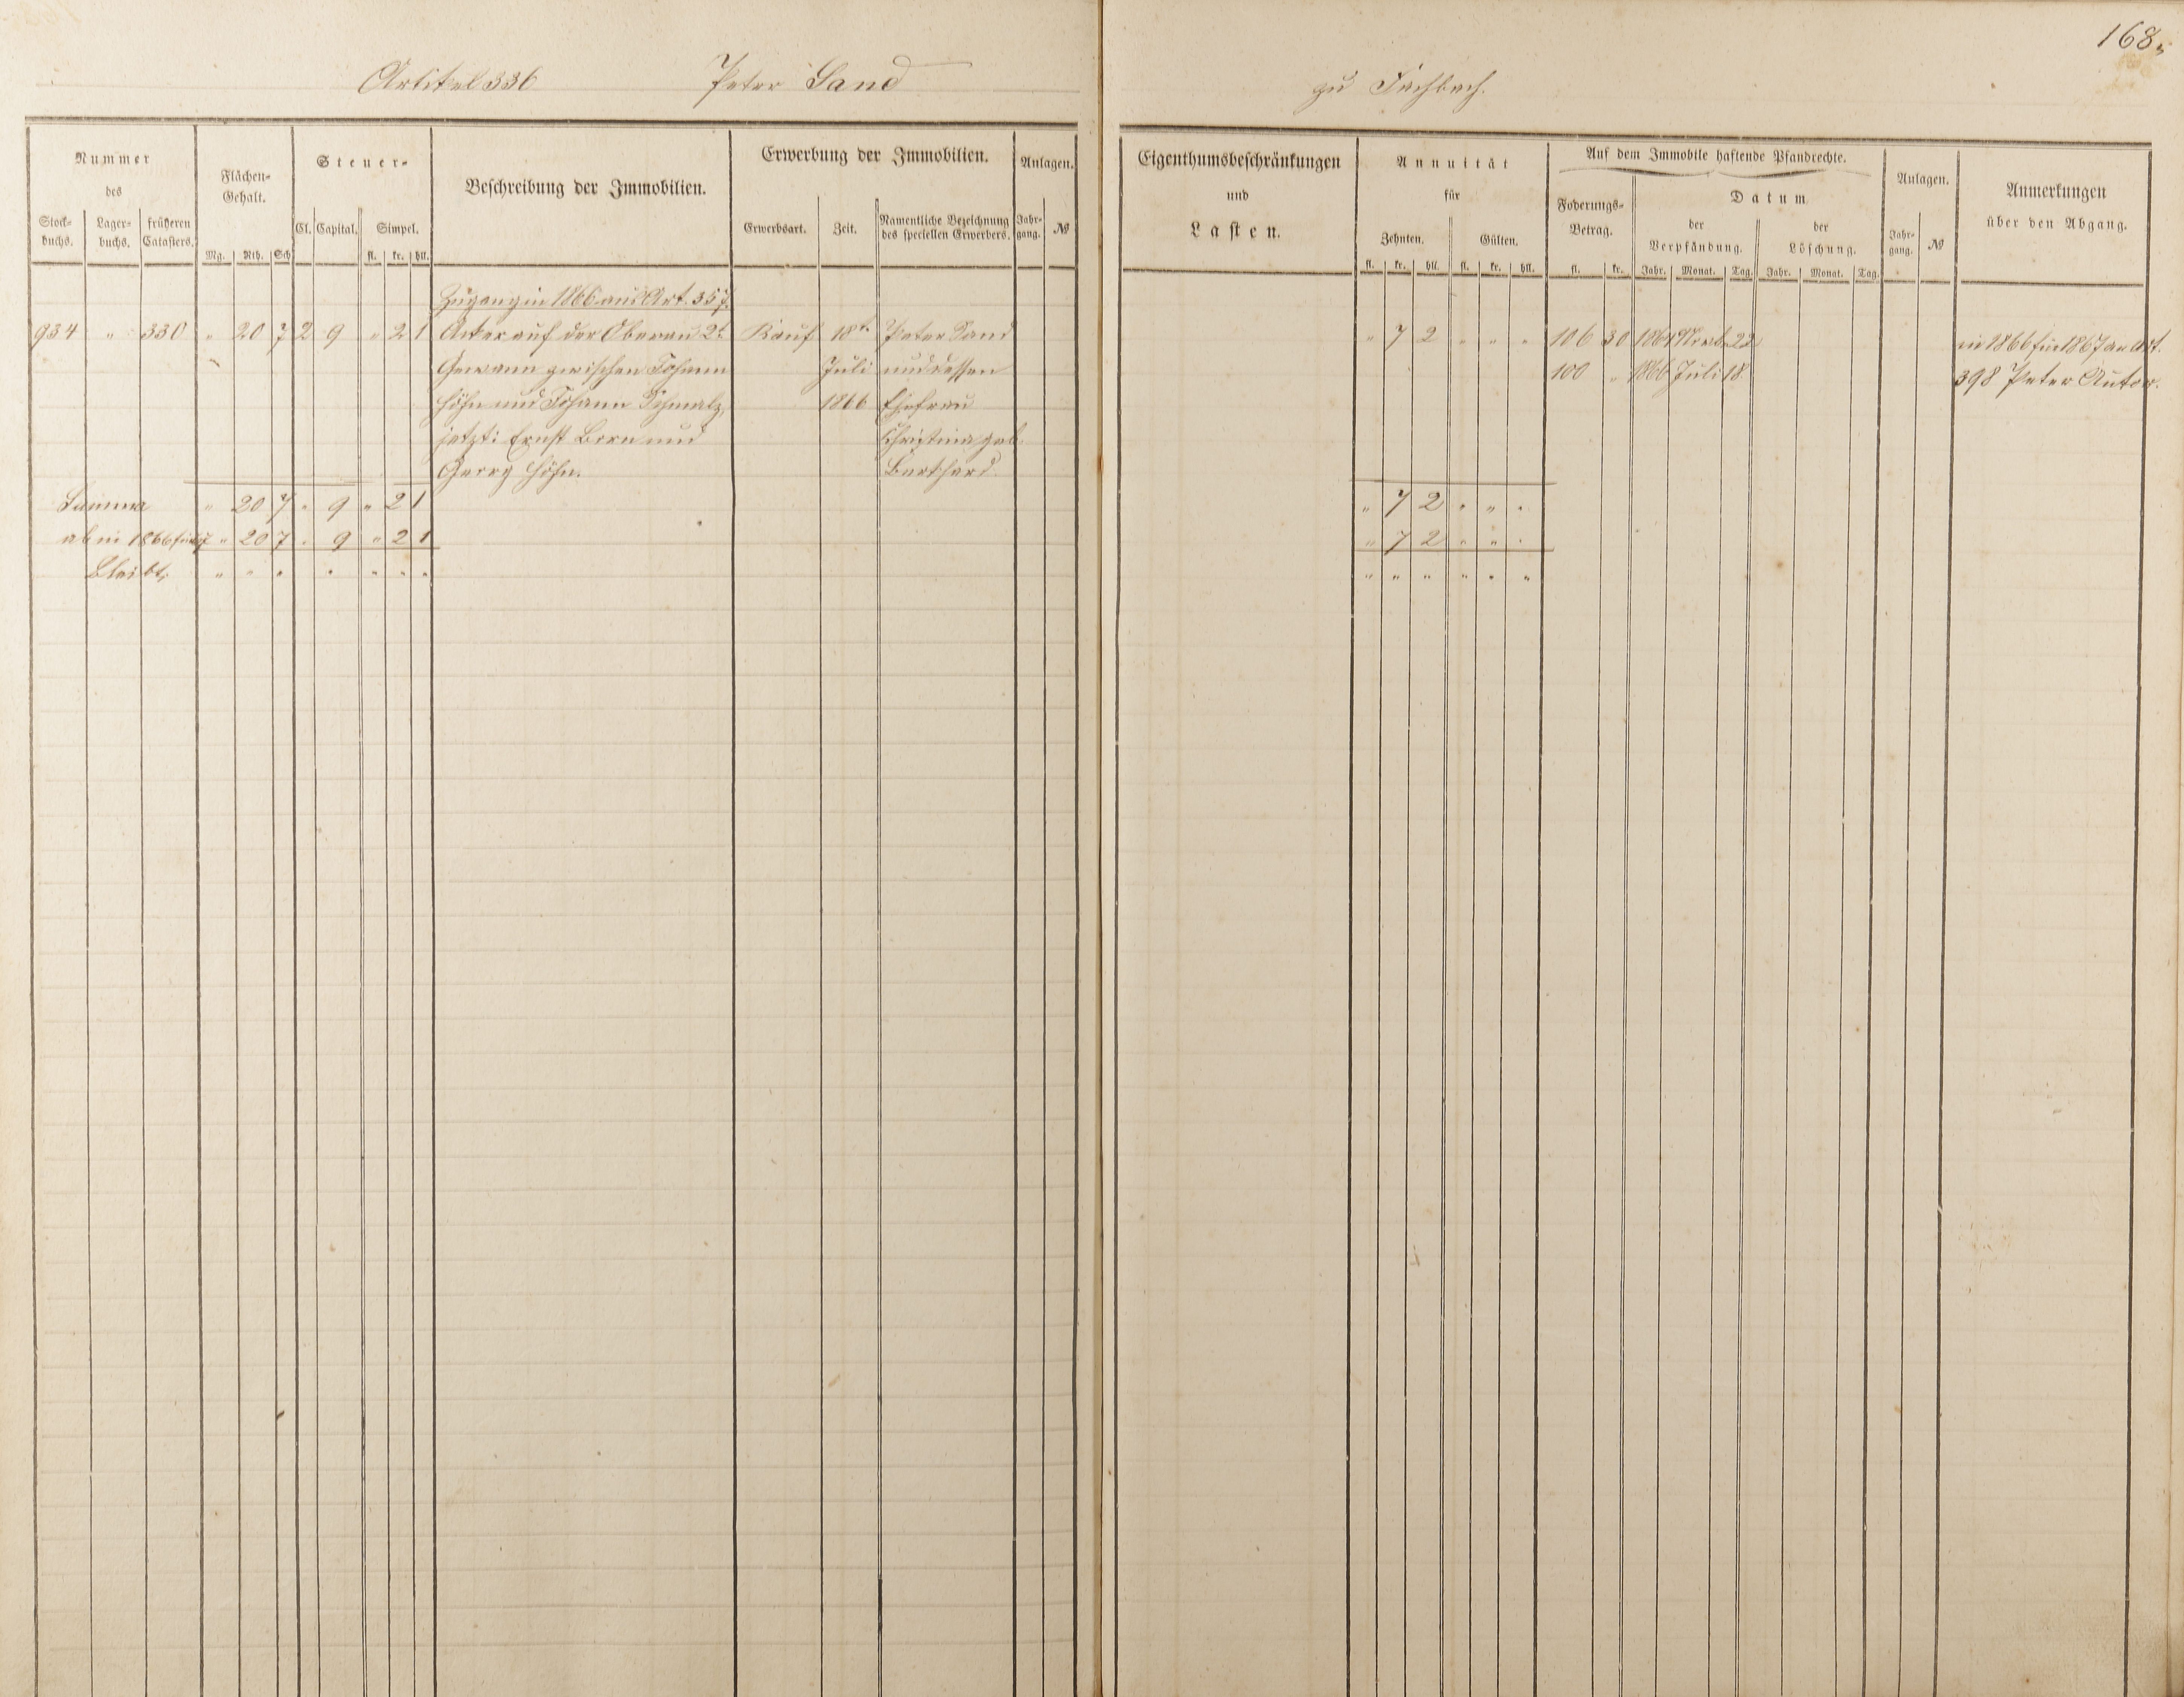 168,
Artikel 336 Peter Sand zu Fachbach.
Nummer des
Stock-buchs. Lager-buchs. früheren Catasters.
Flächen-Gehalt.
Mg. Rth. Sch
Steuer-
Cl. Capital. Simpel.
fl. kr. hll.
Beschreibung der Immobilien.
Erwerbung der Immobilien.
Erwerbsart. Zeit. Namentliche Bezeichnung des speciellen Erwerbers.
Anlagen.
Jahr-gang. №
Eigenthumsbeschränkungen
und
Lasten.
Annuität
für
Zehnten. Gülten.
fl. kr. hll. fl. kr. hll.
Auf dem Immobile haftende Pfandrechte.
Foderungs-Betrag.
fl. kr.
Datum
der Verpfändung. der Löschung.
Jahr. Monat. Tag. Jahr. Monat. Tag.
Anlagen.
Jahr-gang. №
Anmerkungen
über den Abgang.
Zugang in 1866 aus Art. 357.
934 " 330 " 20 7 2 9 " 2 1 Acker auf der Oberau 2t Kauf 18t Peter Sand " 7 2 " " " 106 30 1864 Novb. 22 in 1866 für 1867 an Art.
Gewann zwischen Johann Juli und dessen 100 " 1866 Juli 18. 398 Peter Anton.
Höhn und Johann Schmalz, 1866 Ehefrau
jetzt: Ernst Born und Christina geb.
Georg Höhn. Burkhard.
Summa " 20 7 " 9 " 2 1 " 7 2 " " "
ab in 1866 für 67 " 20 7 " 9 " 2 1 " 7 2 " " "
Bleibt, " " " " " " " " " " " " "